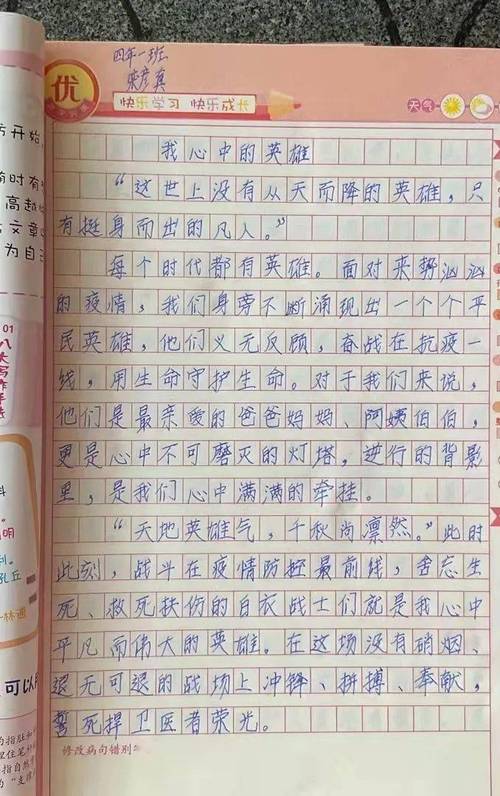 四年一班
优
快乐学习 快乐成长
天气
我心中的英雄
“这世上没有从天而降的英雄，只
有挺身而出的凡人。”
每个时代都有英雄。面对来势汹汹
的疫情，我们身旁不断涌现出一个个平
民英雄，他们义无反顾，奋战在抗疫一
线，用生命守护生命。对于我们来说，
他们是最亲爱的爸爸妈妈、阿姨伯伯，
更是心中不可磨灭的灯塔，逆行的背影
里，是我们心中满满的牵挂。
“天地英雄气，千秋尚凛然。”此时
此刻，战斗在疫情防控最前线，舍忘生
死、救死扶伤的白衣战士们就是我心中
平凡而伟大的英雄。在这场没有硝烟、
退无可退的战场上冲锋、拼搏、奉献，
誓死捍卫医者荣光。
修改病句错别
方开始
前时有
高越
文章
为自己
01
八大写作手法
料
明
孔丘
林逋
可以